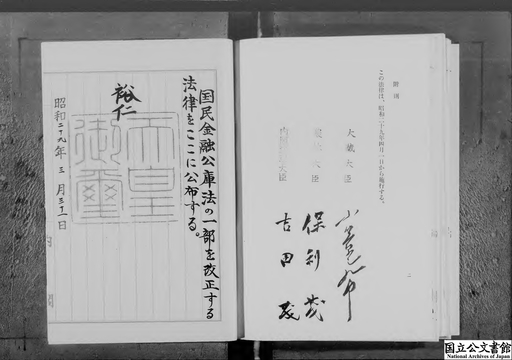 附則
この法律は、昭和二十九年四月一日から施行する。
大蔵大臣
農林大臣
保利茂
内閣総理大臣
吉田茂
国民金融公庫法の一部を改正する
法律をここに公布する。
裕仁
天皇
御璽
昭和二十九年三月三十一日
内閣
国立公文書館
National Archives of Japan